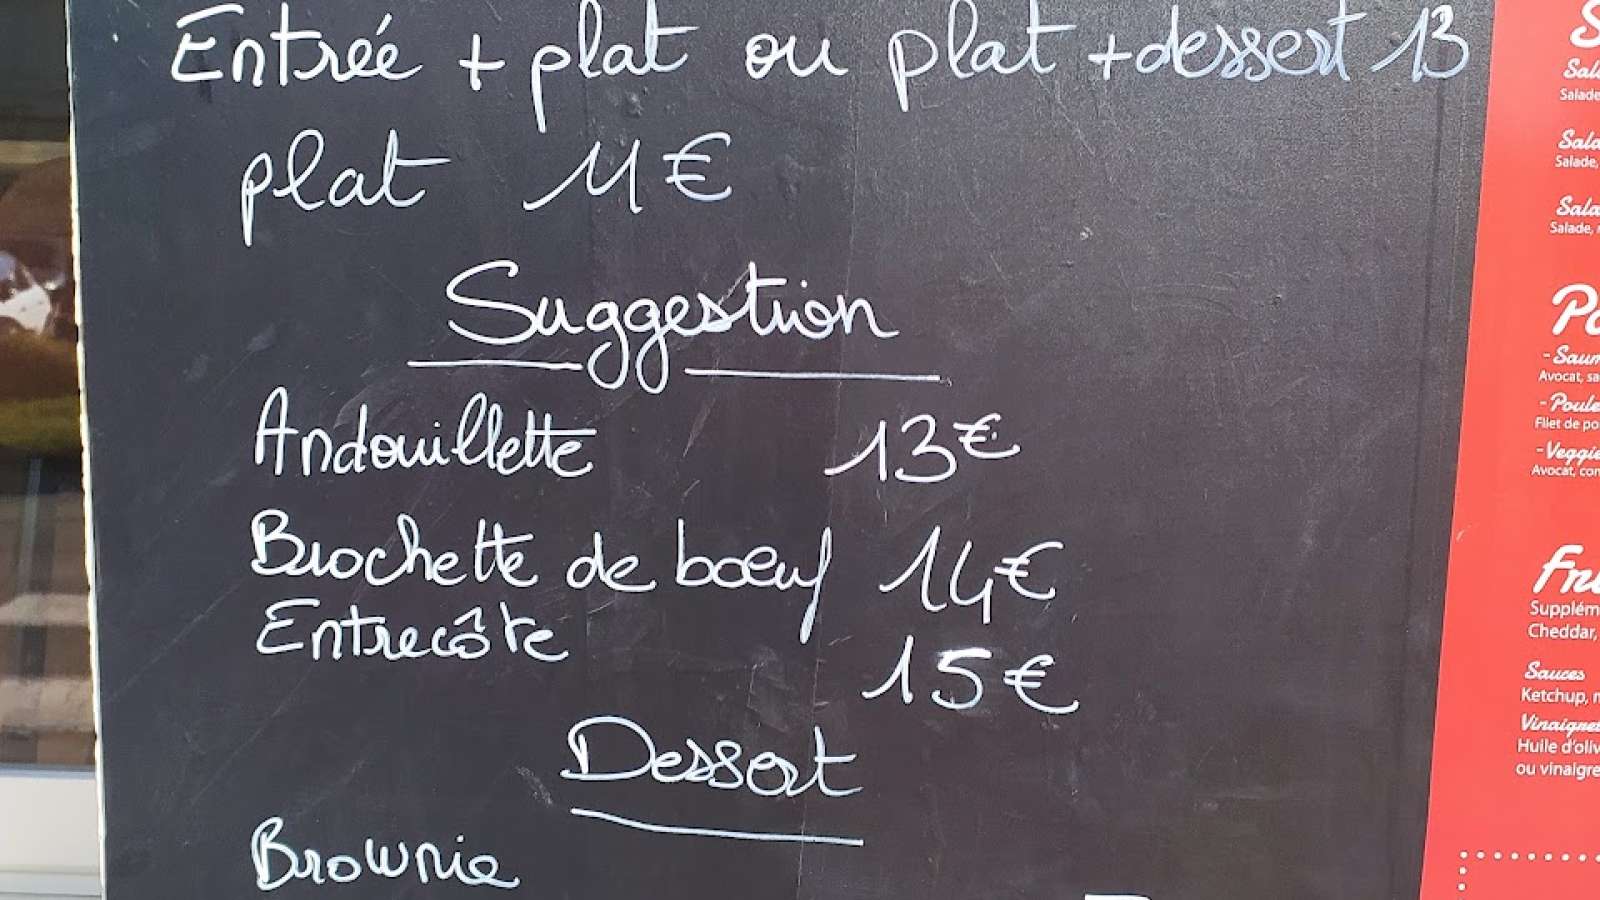 Entrée + plat ou plat + dessert 13
plat 11€
Suggestion
Andouillette 13€
Brochette de bœuf 14€
Entrecôte 15€
Dessert
Brownie
Salade
Salade,
Salade,
- Veggie
Avocat, sa
Filet de po
Avocat, con
Supplém
Cheddar,
Sauces
Ketchup, m
Vinaigret
Huile d'oliv
ou vinaigre